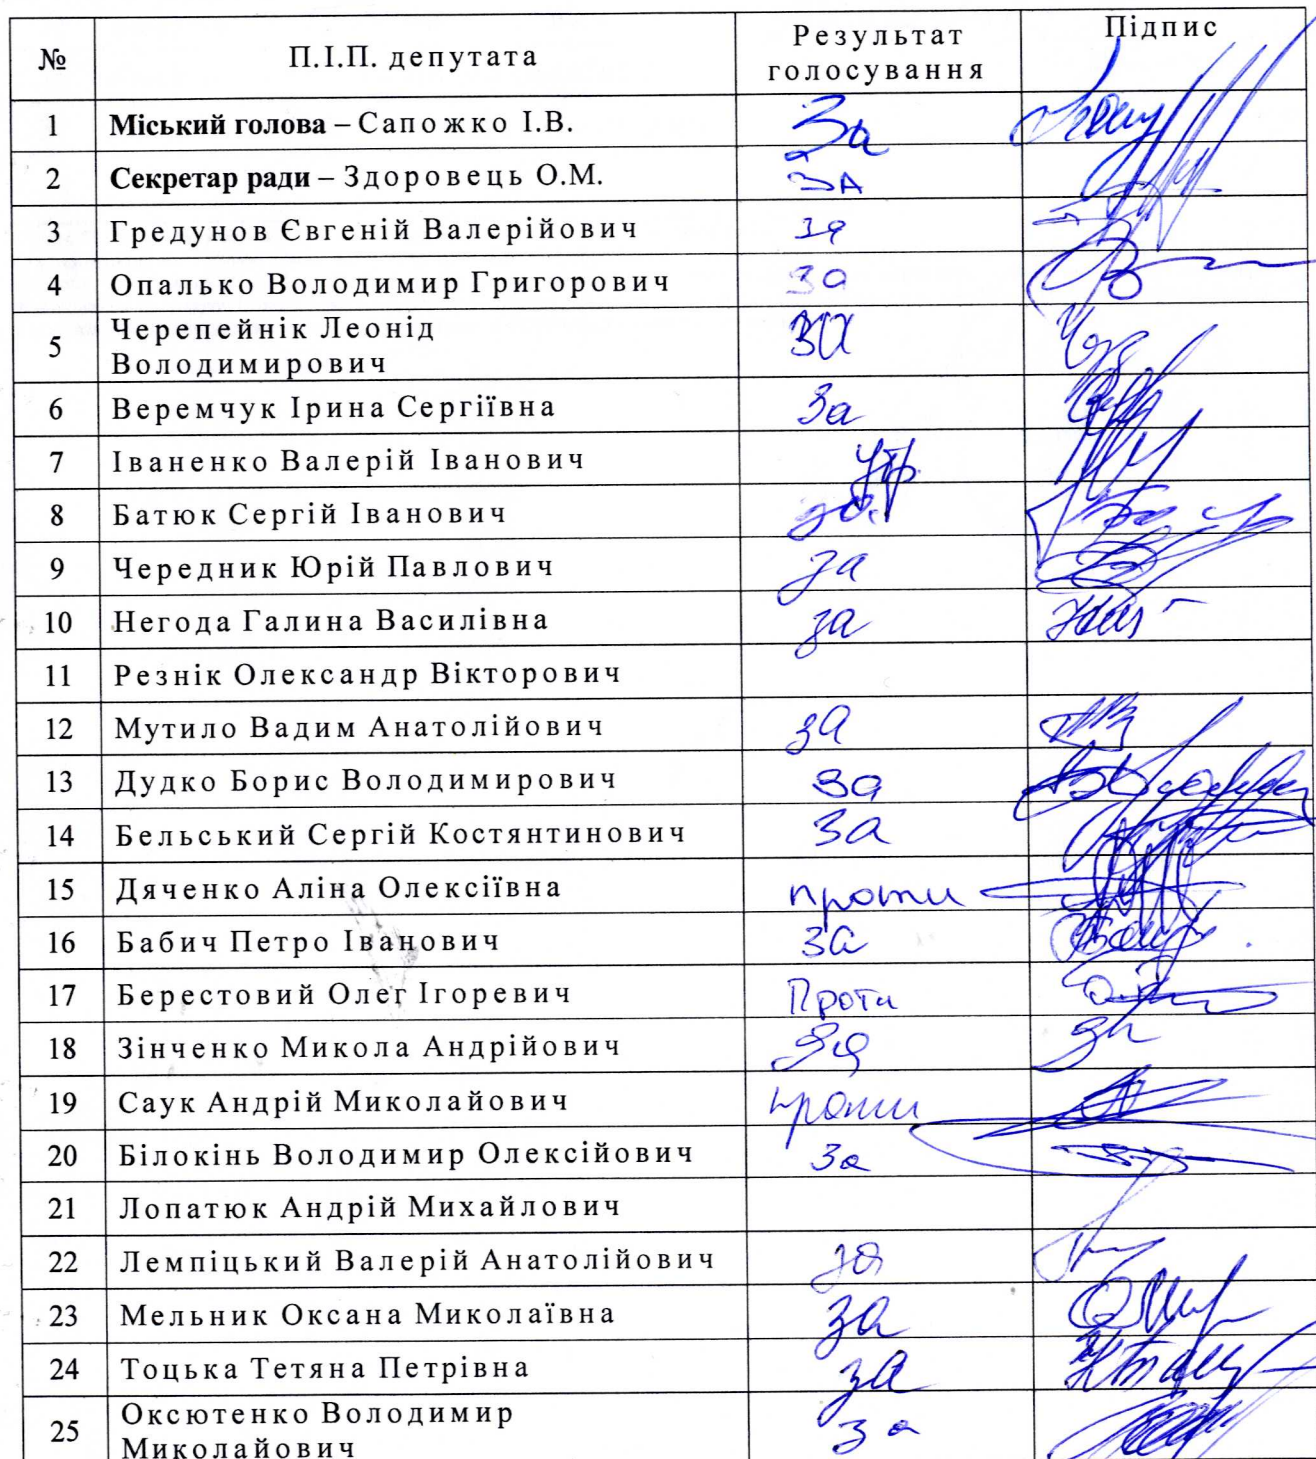 № П.І.П. депутата Результат голосування Підпис
1 Міський голова – Сапожко І.В. За
2 Секретар ради – Здоровець О.М. ЗА
3 Гредунов Євгеній Валерійович за
4 Опалько Володимир Григорович за
5 Черепейнік Леонід
Володимирович за
6 Веремчук Ірина Сергіївна За
7 Іваненко Валерій Іванович утр
8 Батюк Сергій Іванович за
9 Чередник Юрій Павлович за
10 Негода Галина Василівна за
11 Резнік Олександр Вікторович
12 Мутило Вадим Анатолійович за
13 Дудко Борис Володимирович за
14 Бельський Сергій Костянтинович За
15 Дяченко Аліна Олексіївна проти
16 Бабич Петро Іванович за
17 Берестовий Олег Ігоревич Проти
18 Зінченко Микола Андрійович За
19 Саук Андрій Миколайович проти
20 Білокінь Володимир Олексійович За
21 Лопатюк Андрій Михайлович
22 Лемпіцький Валерій Анатолійович за
23 Мельник Оксана Миколаївна за
24 Тоцька Тетяна Петрівна за
25 Оксютенко Володимир
Миколайович за